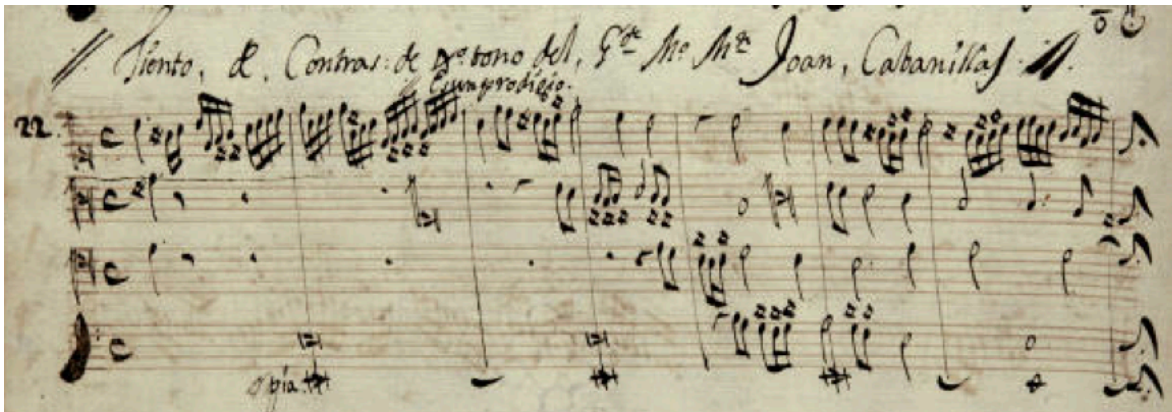 Tiento, de, Contras: de 4º. tono del, Gde. Mo. Mn. Joan, Cabanillas.
Es un prodigio.
22.